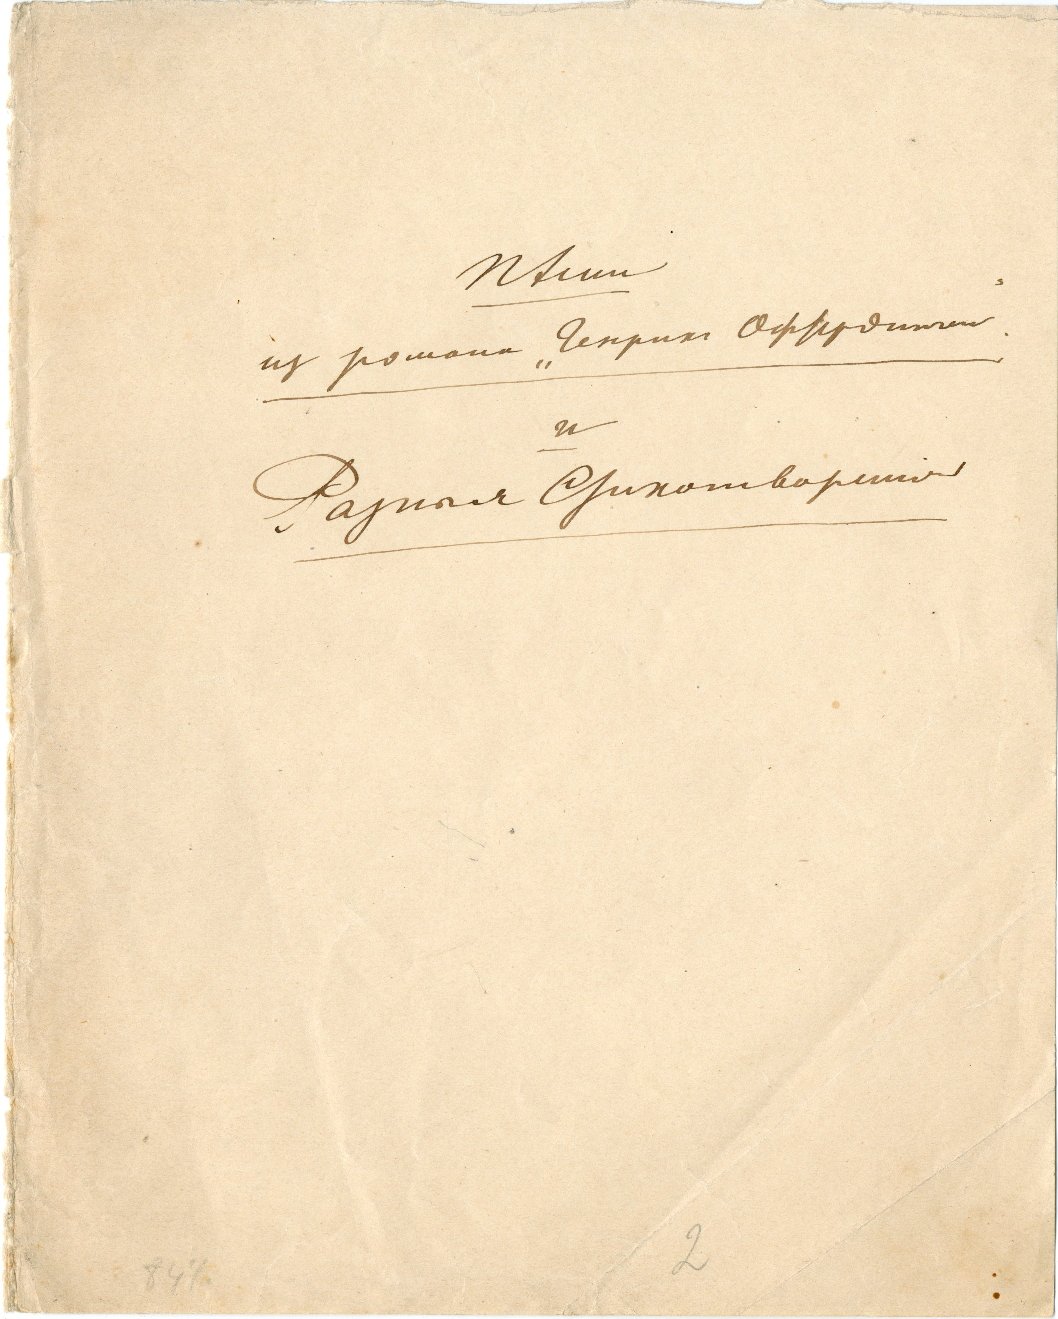 Пѣсни
из романа „Генрих Офтердинген"
и
Разныя Стихотворения
2
844